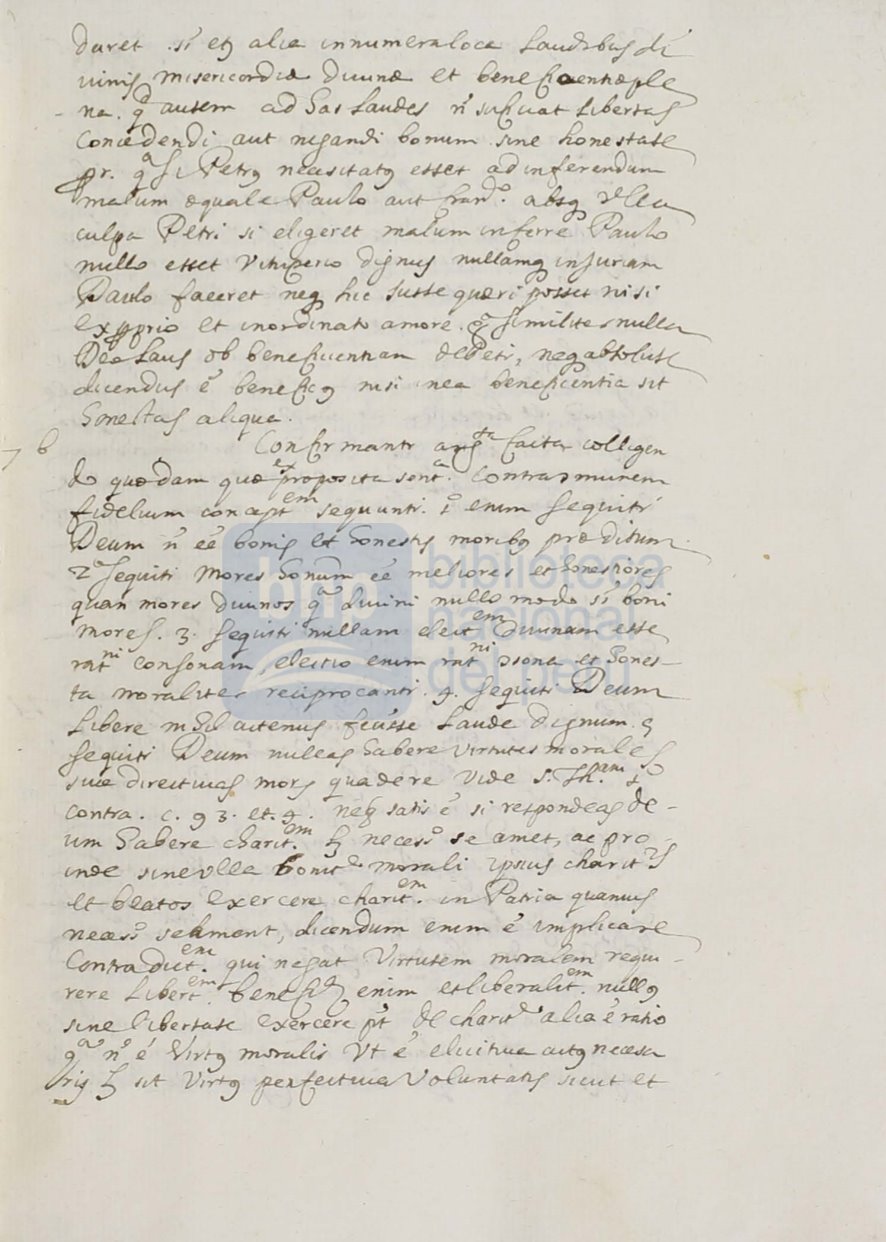 duret. st̃ et alia innumera loca Laudibus di
vinis misericordiæ divinæ et beneficentiæ ple
na. qd̃ autem ad has Laudes ñ suficiat Libertas
Concedendi aut negandi bonum sine honestate
pr. qª si Petrꝯ necesitatꝯ esset ad inferendum
malum æquale Paulo aut franᵒ. absqꝫ ulla
culpa Petri si eligeret malum inferre Paulo
nullo esset vituperio dignus nullamqꝫ injuriam
Paulo faceret neqꝫ hic juste quæri posset nisi
ex pprio et inordinato amore. similiter nulla
Deo Laus ob beneficientiam debetr, neqꝫ absolute
dicendus ẽ beneficꝯ nisi in ea beneficentia sit
honestas aliqua.
7 6
Confirmantr facta colligen
do quædam quæ ex proposita sentª. contra ɔmunem
fidelium conceptᵉᵐ sequuntr. 1º enim sequitr
Deum ñ eẽ bonis et honestis moribꝯ præditum.
2º sequitr mores honum eẽ meliores et honestiores
quam mores divinos qª divini nullo modo st̃ boni
mores. 3. sequitr nullam electᵉᵐ divinam esse
ratⁿⁱ consonam, electio enim ratⁿⁱ ɔsona et hones-
ta moraliter reciprocantr. 4. sequitr Deum
Libere nihil actenus fecisse Laude dignum. 5
sequitr Deum nullas habere virtutes morales
sive directivas mors qua de re vide S. Thᵃᵐ 1
contra. c. 93. et. 4. neqꝫ satis ẽ si respondeas de-
um habere charitᵉᵐ. necessº se amet, ac pro-
inde sine ulla bonitᵉ morali ipsius charitˢ
et beatos exercere charitᵉᵐ. in Patria quamvis
necessº se ament, dicendum enim ẽ implicare
Contradictᵉᵐ. qui negat Virtutem moralem requi-
rere Libertᵉᵐ. enim et liberalitᵉᵐ. nullꝯ
sine libertate exercere pt̃ de charitᵉ alia ẽ ratio
qª nº ẽ Virtꝯ moralis Vt ẽ elicitiva actꝯ necessa
rij sit Virtꝯ perfectiva Voluntatis sicut et